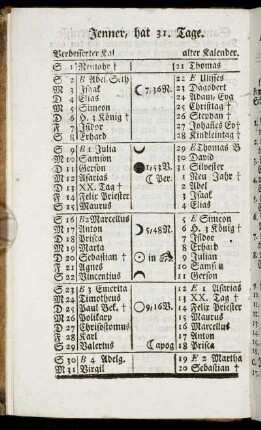 Jenner, hat 31. Tage.
Verbesserter Kal alter Kalender.
S 1 Neujahr † 21 Thomas
S 2 B Abel Seth 22 E Ulisses
M 3 Isaak ☾7,36N. 23 Dagobert
D 4 Elias 24 Adam, Eva
M 5 Simeon 25 Christtag †
D 6 H. 3 König † 26 Stephan †
F 7 Isidor 27 Johañes Ev†
S 8 Erhard 28 Kindleintag †
S 9 B 1 Julia 29 E Thomas B
M 10 Samson 30 David
D 11 Gerson 1,53V. 31 Silvester
M 12 Asarias ☾ Per. 1 Neu Jahr †
D 13 XX. Tag † 2 Abel
F 14 Felix Priester 3 Isaak
S 15 Maurus 4 Elias
S 16 B2 Marcellus 5 E Simeon
M 17 Anton ☽5/48N. 6 H. 3 König †
D 18 Prisca 7 Isidor
M 19 Marta 8 Erhard
D 20 Sebastian † ☉ in 9 Julian
F 21 Agnes 10 Samson
S 22 Vincentius 11 Gerson
S 23 B 3 Emerita 12 E 1 Asarias
M 24 Timotheus 13 XX. Tag †
D 25 Paul Bek. † 9/16V. 14 Felix Priester
M 26 Polikarp 15 Maurus
D 27 Chrisostomus 16 Marcellus
F 28 Karl 17 Anton
S 29 Valerius ☾apog 18 Prisca
S 30 B 4 Adelg. 19 E 2 Martha
M 31 Virgil 20 Sebastian †